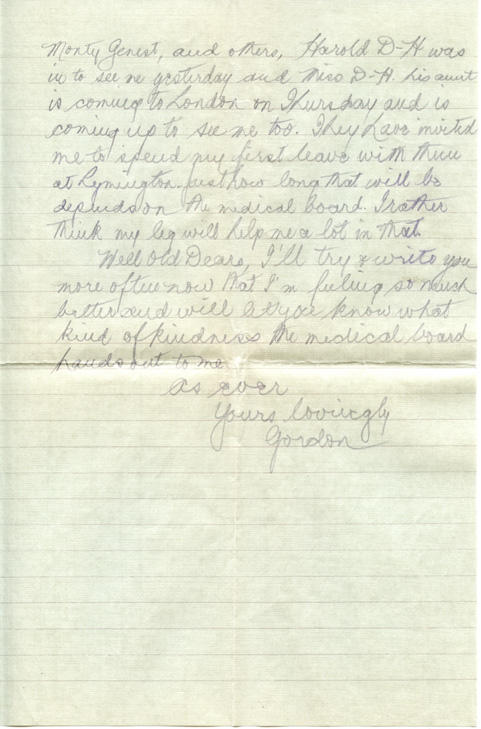 Monty Genest, and others, Harold D-H was
in to see me yesterday and Miss D-H. his aunt
is coming to London on Thursday and is
coming up to see me too. They have invited
me to spend my first leave with them
at Lymington. Just how long that will be
depends on the medical board. I rather
think my leg will help me a lot in that.
Well Old Dears, I'll try & write you
more often now that I'm feeling so much
better and will let you know what
kind of kindness the medical board
hands out to me
As ever
Yours lovingly
Gordon